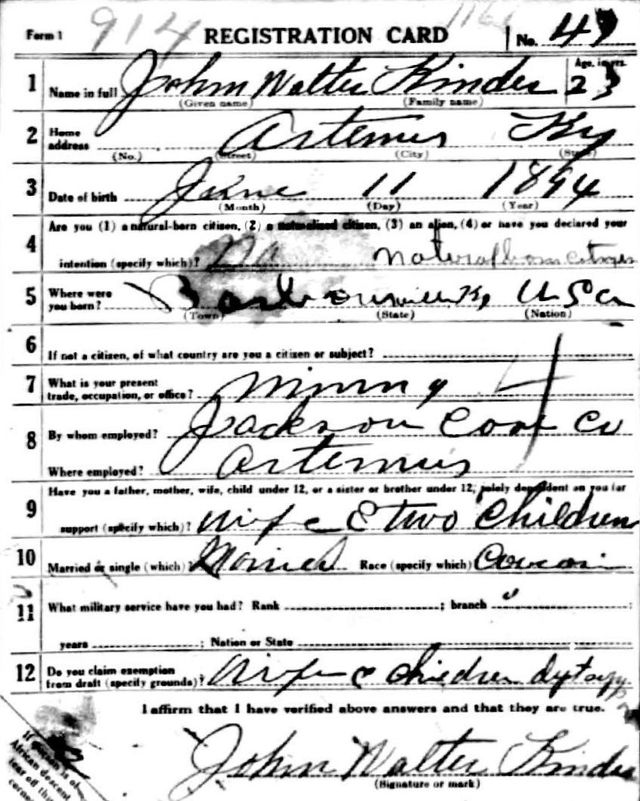 Form 1 914 REGISTRATION CARD No. 49
1 Name in full John Walter Kinder Age, in yrs. 23
(Given name) (Family name)
2 Home address Artemus Ky
(No.) (Street) (City) (State)
3 Date of birth June 11 1894
(Month) (Day) (Year)
4 Are you (1) a natural-born citizen, (2) a naturalized citizen, (3) an alien, (4) or have you declared your
intention (specify which)? natural born citizen
5 Where were you born? Barbourville Ky USA
(Town) (State) (Nation)
6 If not a citizen, of what country are you a citizen or subject?
7 What is your present trade, occupation, or office? mining
8 By whom employed? Jackson Coal Co
Where employed? Artemus
9 Have you a father, mother, wife, child under 12, or a sister or brother under 12, solely dependent on you for
support (specify which)? wife & two children
10 Married or single (which)? Married Race (specify which)
11 What military service have you had? Rank ; branch ;
years ; Nation or State
12 Do you claim exemption from draft (specify grounds)? wife & children
I affirm that I have verified above answers and that they are true.
John Walter Kinder
(Signature or mark)
If person is of
African descent
tear off this
corner